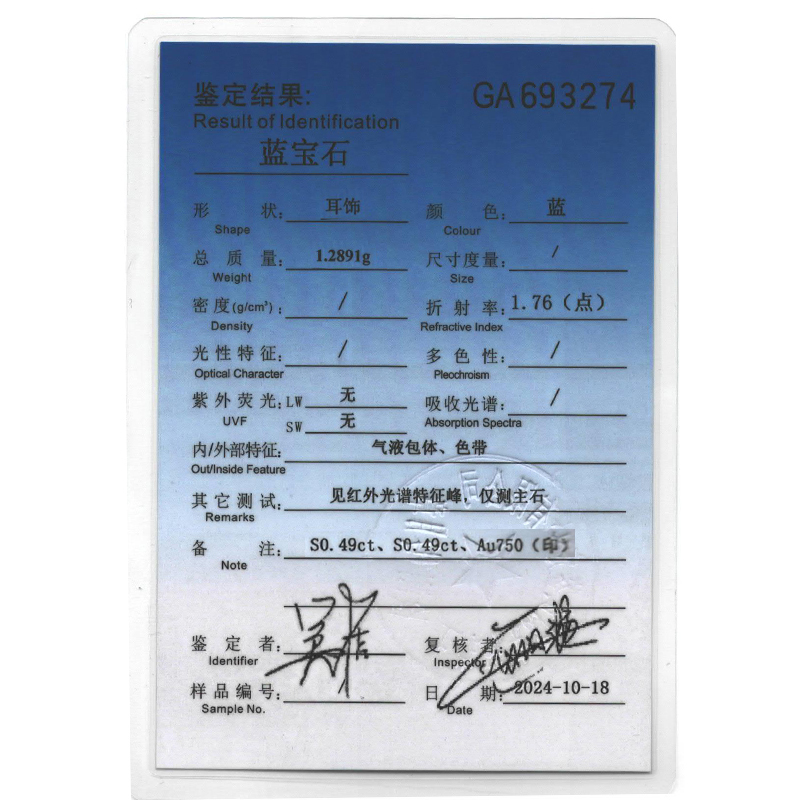 鉴定结果: GA693274
Result of Identification
蓝宝石
形 状: 耳饰 颜 色: 蓝
Shape Colour
总 质 量: 1.2891g 尺寸度量: /
Weight Size
密度(g/cm³): / 折 射 率: 1.76（点）
Density Refractive Index
光性特征: / 多 色 性: /
Optical Character Pleochroism
紫外荧光: LW 无 吸收光谱: /
UVF SW 无 Absorption Spectra
内/外部特征: 气液包体、色带
Out/Inside Feature
其它测试: 见红外光谱特征峰，仅测主石
Remarks
备 注: S0.49ct、S0.49ct、Au750（印）
Note
鉴 定 者: 复 核 者:
Identifier Inspector
样品编号: 日 期: 2024-10-18
Sample No. Date